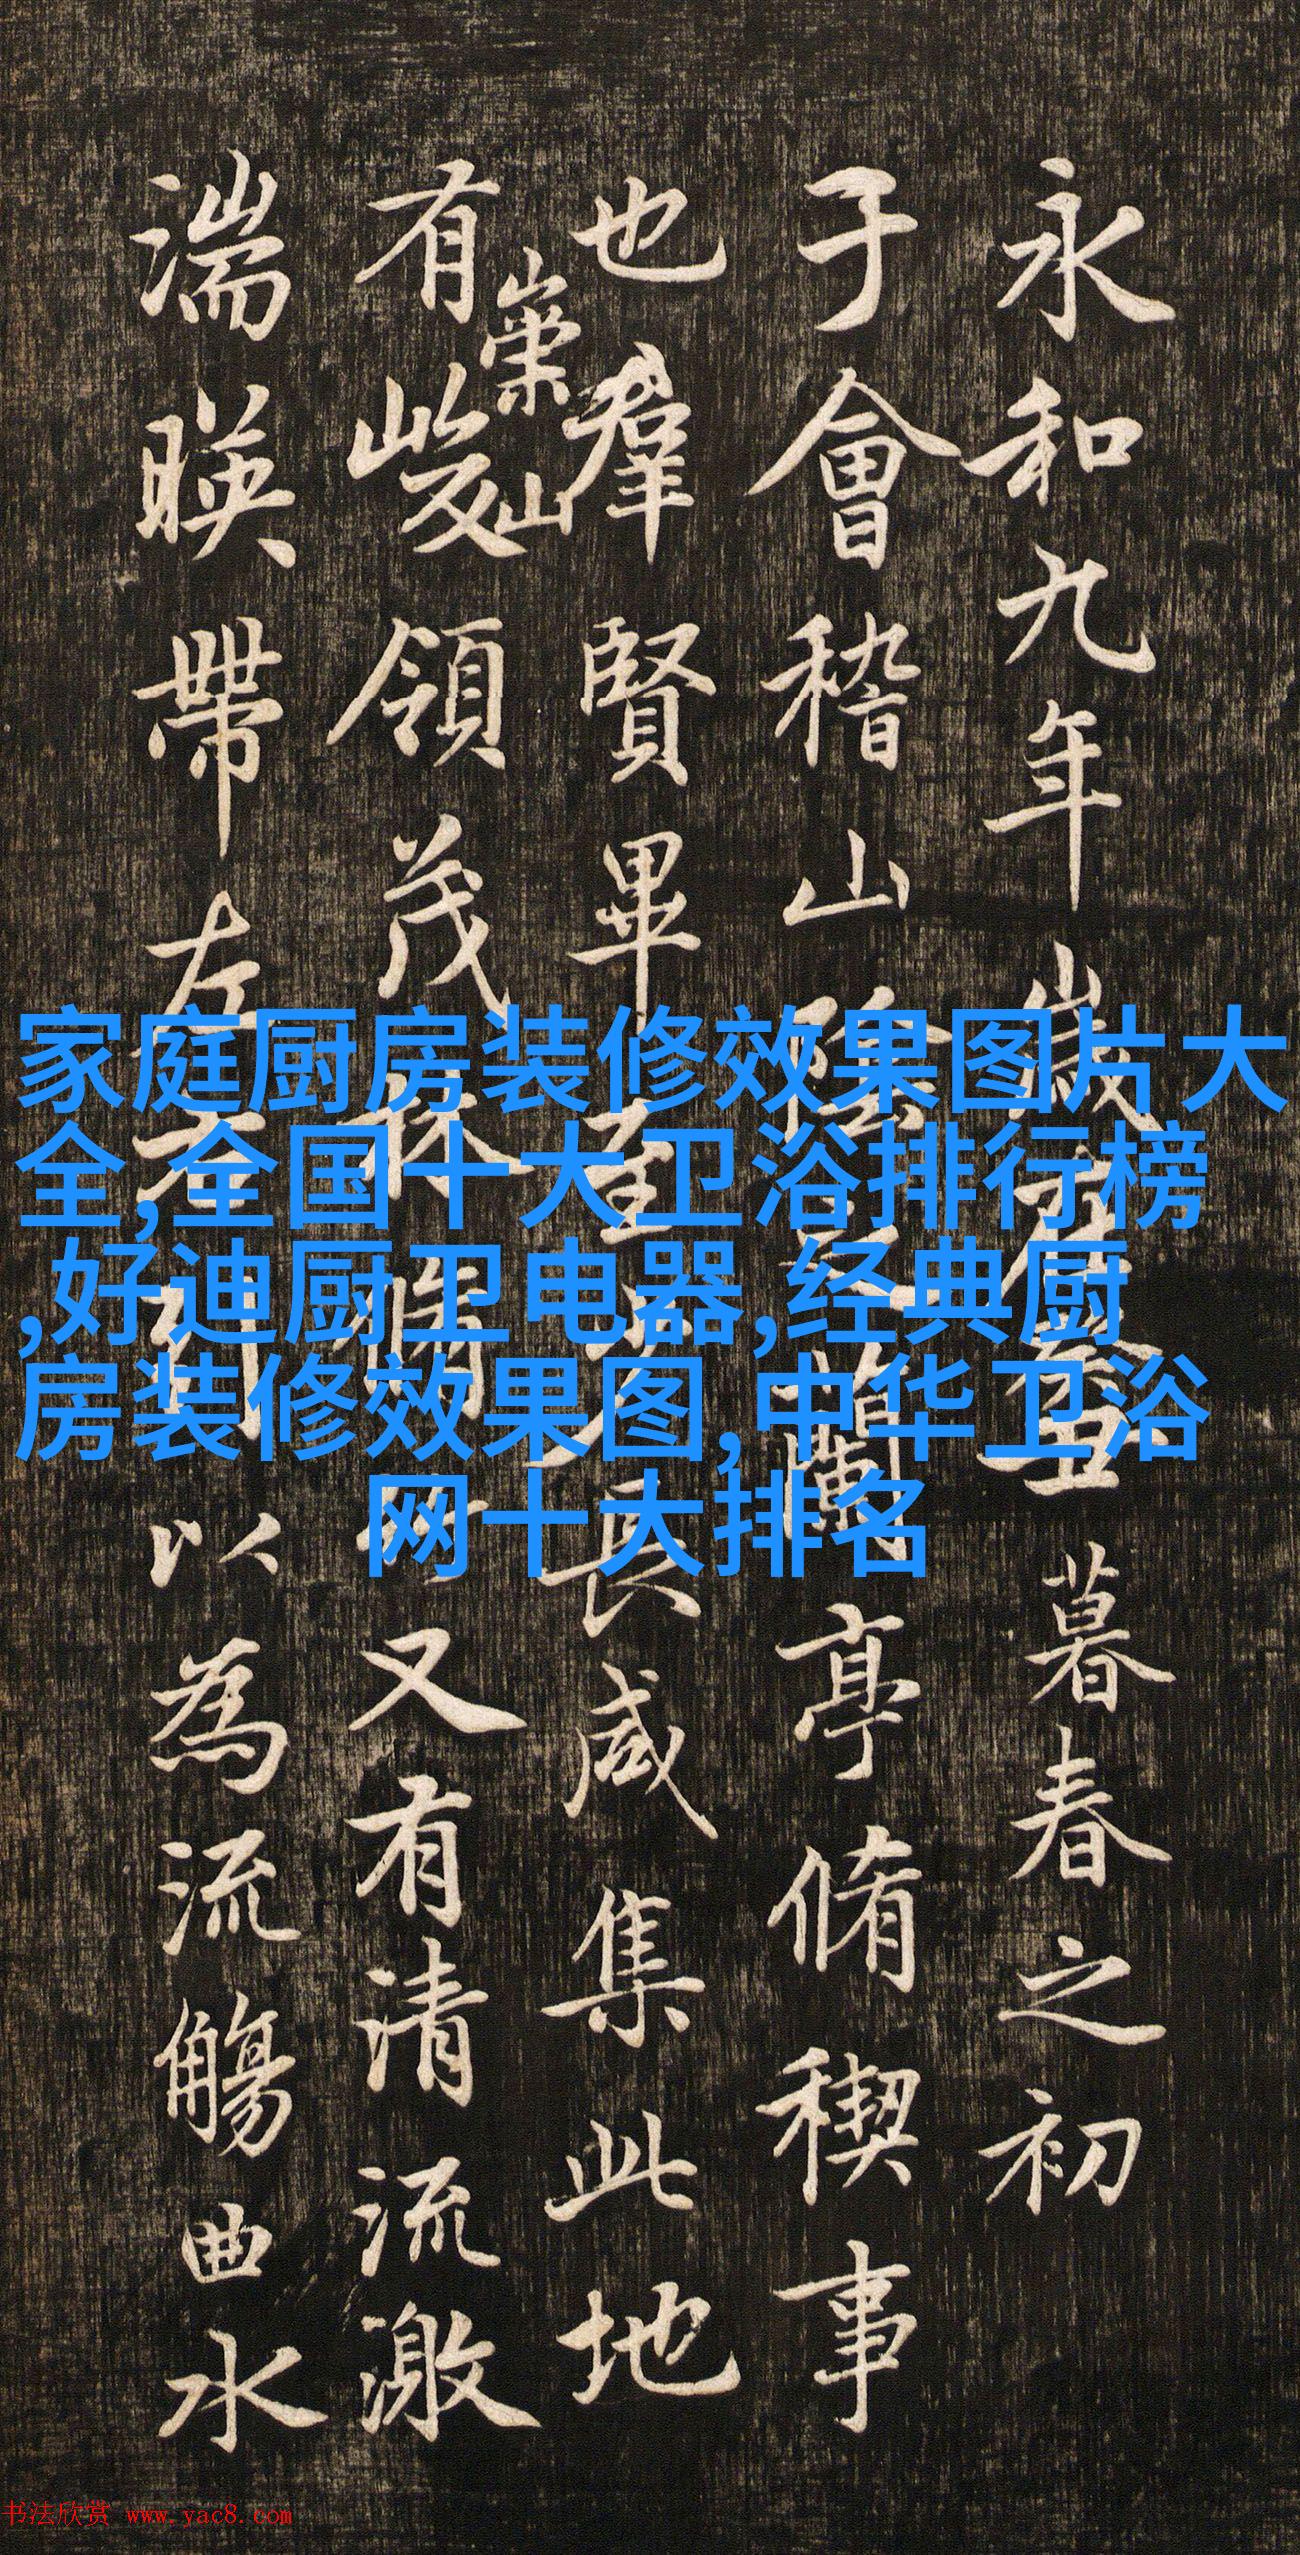 永和九年歲在癸丑暮春之初
于會稽山陰之蘭亭脩稧事
也羣賢畢至少長咸集此地
有崇山峻領茂林脩竹又有清流激
湍暎帶左右引以為流觴曲水
家庭厨房装修效果图片大
全,全国十大卫浴排行榜
,好迪厨卫电器,经典厨
房装修效果图,中华卫浴
网十大排名
书法欣赏 www.yac8.com